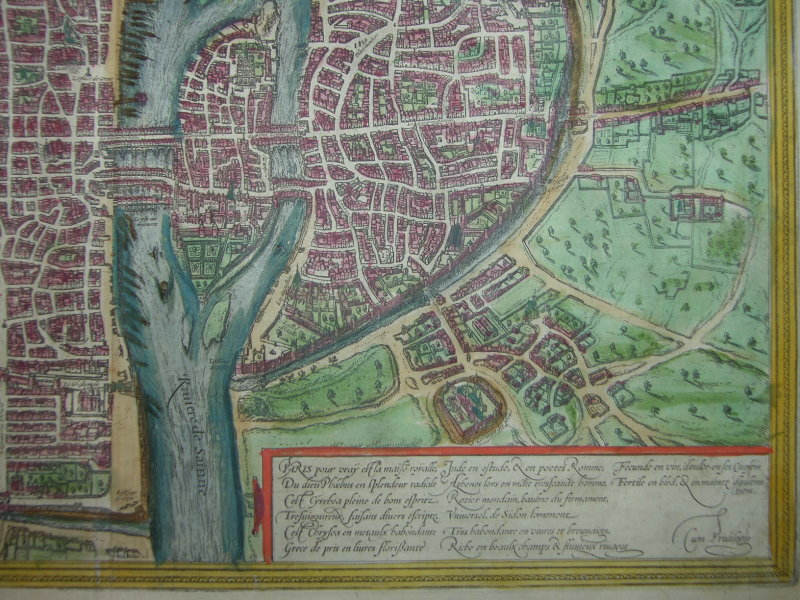 Riviere de Sainne
PARIS pour vraÿ est la maisõ roÿalle
Du dieu Phœbus en splendeur radiale
C'est Cyrrhea pleine de bons espritz
Tresvigoureux, faisans divers escriptz
C'est Chrysea en metaulx habondante
Grece de pris en livres florissante
Jnde en estude, & en poetes Romme,
Athenes lors en maît treseavãt homme
Rozier mondain, baulme du firmament,
Vniversel, de Sidon l'ornement
Tres habondante en vivres et breuvaiges
Riche en beaulx champs & fluvieux rivages
Fecunde en vin, doulce en ses Citoyens
Fertile en bled, & en maintz
biens.
Cum Privilegio